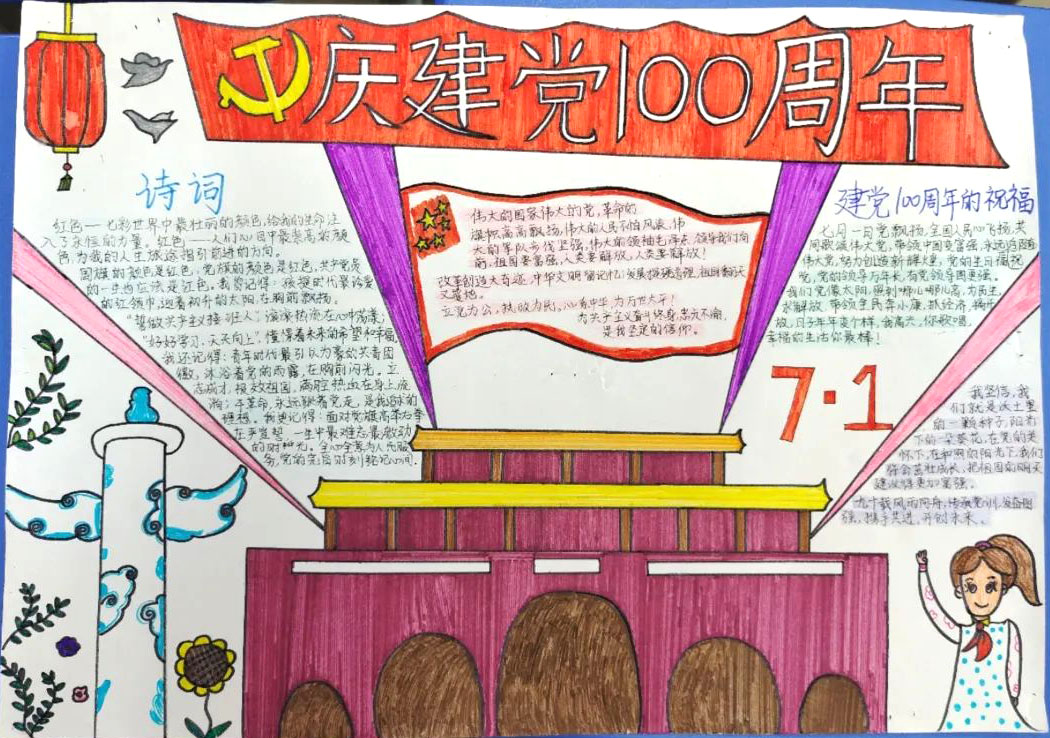 庆建党100周年
诗词
红色——七彩世界中最壮丽的颜色,给我的生命注
入了永恒的力量。红色——人们心目中最崇高的颜
色,为我的人生旅途指引前进的方向。
国旗的颜色是红色,党旗的颜色是红色,共产党员
的一生也应该是红色。我曾记得:孩提时代最珍爱
的红领巾,迎着初升的太阳,在胸前飘扬。
“誓做共产主义接班人”,滚滚热流在心中荡漾;
“好好学习、天天向上”,憧憬着未来的希望和幸福。
我还记得:青年时代最引以为豪的共青团
徽,沐浴着党的雨露,在胸前闪光。立
志成才,报效祖国,满腔热血在身上流
淌;干革命,永远跟着党走,是我滔滔的
理想。我更记得:面对党旗高举右拳
在平宣誓 一生中最难忘最激动
的时刻光。全心全意为人民服
务,党的宗旨时刻铭记心间.
伟大的国家伟大的党,革命的
旗帜高高飘扬,伟大的人民不怕风浪,伟
大的军队步伐坚强,伟大的领袖毛泽东,领导我们向
前,祖国要富强,人类要解放,人类要解放!
改革创造大奇迹,中华文明留记忆;发展
立党为公,执政为民,心系中华,为万世太平!
为共产主义奋斗终身,忠贞不渝,
是我坚定的信仰。
建党100周年的祝福
七月一日党飘扬,全国人民心飞扬,共
同歌颂伟大党,带领中国变富强,永远追随着
伟大党,努力创造新辉煌,党的生日福祝
党,党的领导万年长,有党领导国更强。
我们党像太阳,照到哪儿哪儿亮,为民生,
求解放,带领全民奔小康,抓经济,搞开
放,日子年年变个样,我高兴,你歌唱,
幸福的生活你最棒!
7·1
我坚信,我
们就是沃土里
的一颗种子,阳光
下的一朵葵花,在党的关
怀下,在和煦的阳光下,我们
将会茁壮成长,把祖国的明天
建设得更加富强。
九十载风雨同舟,传承党训,发奋图
强,携手共进,开创未来。